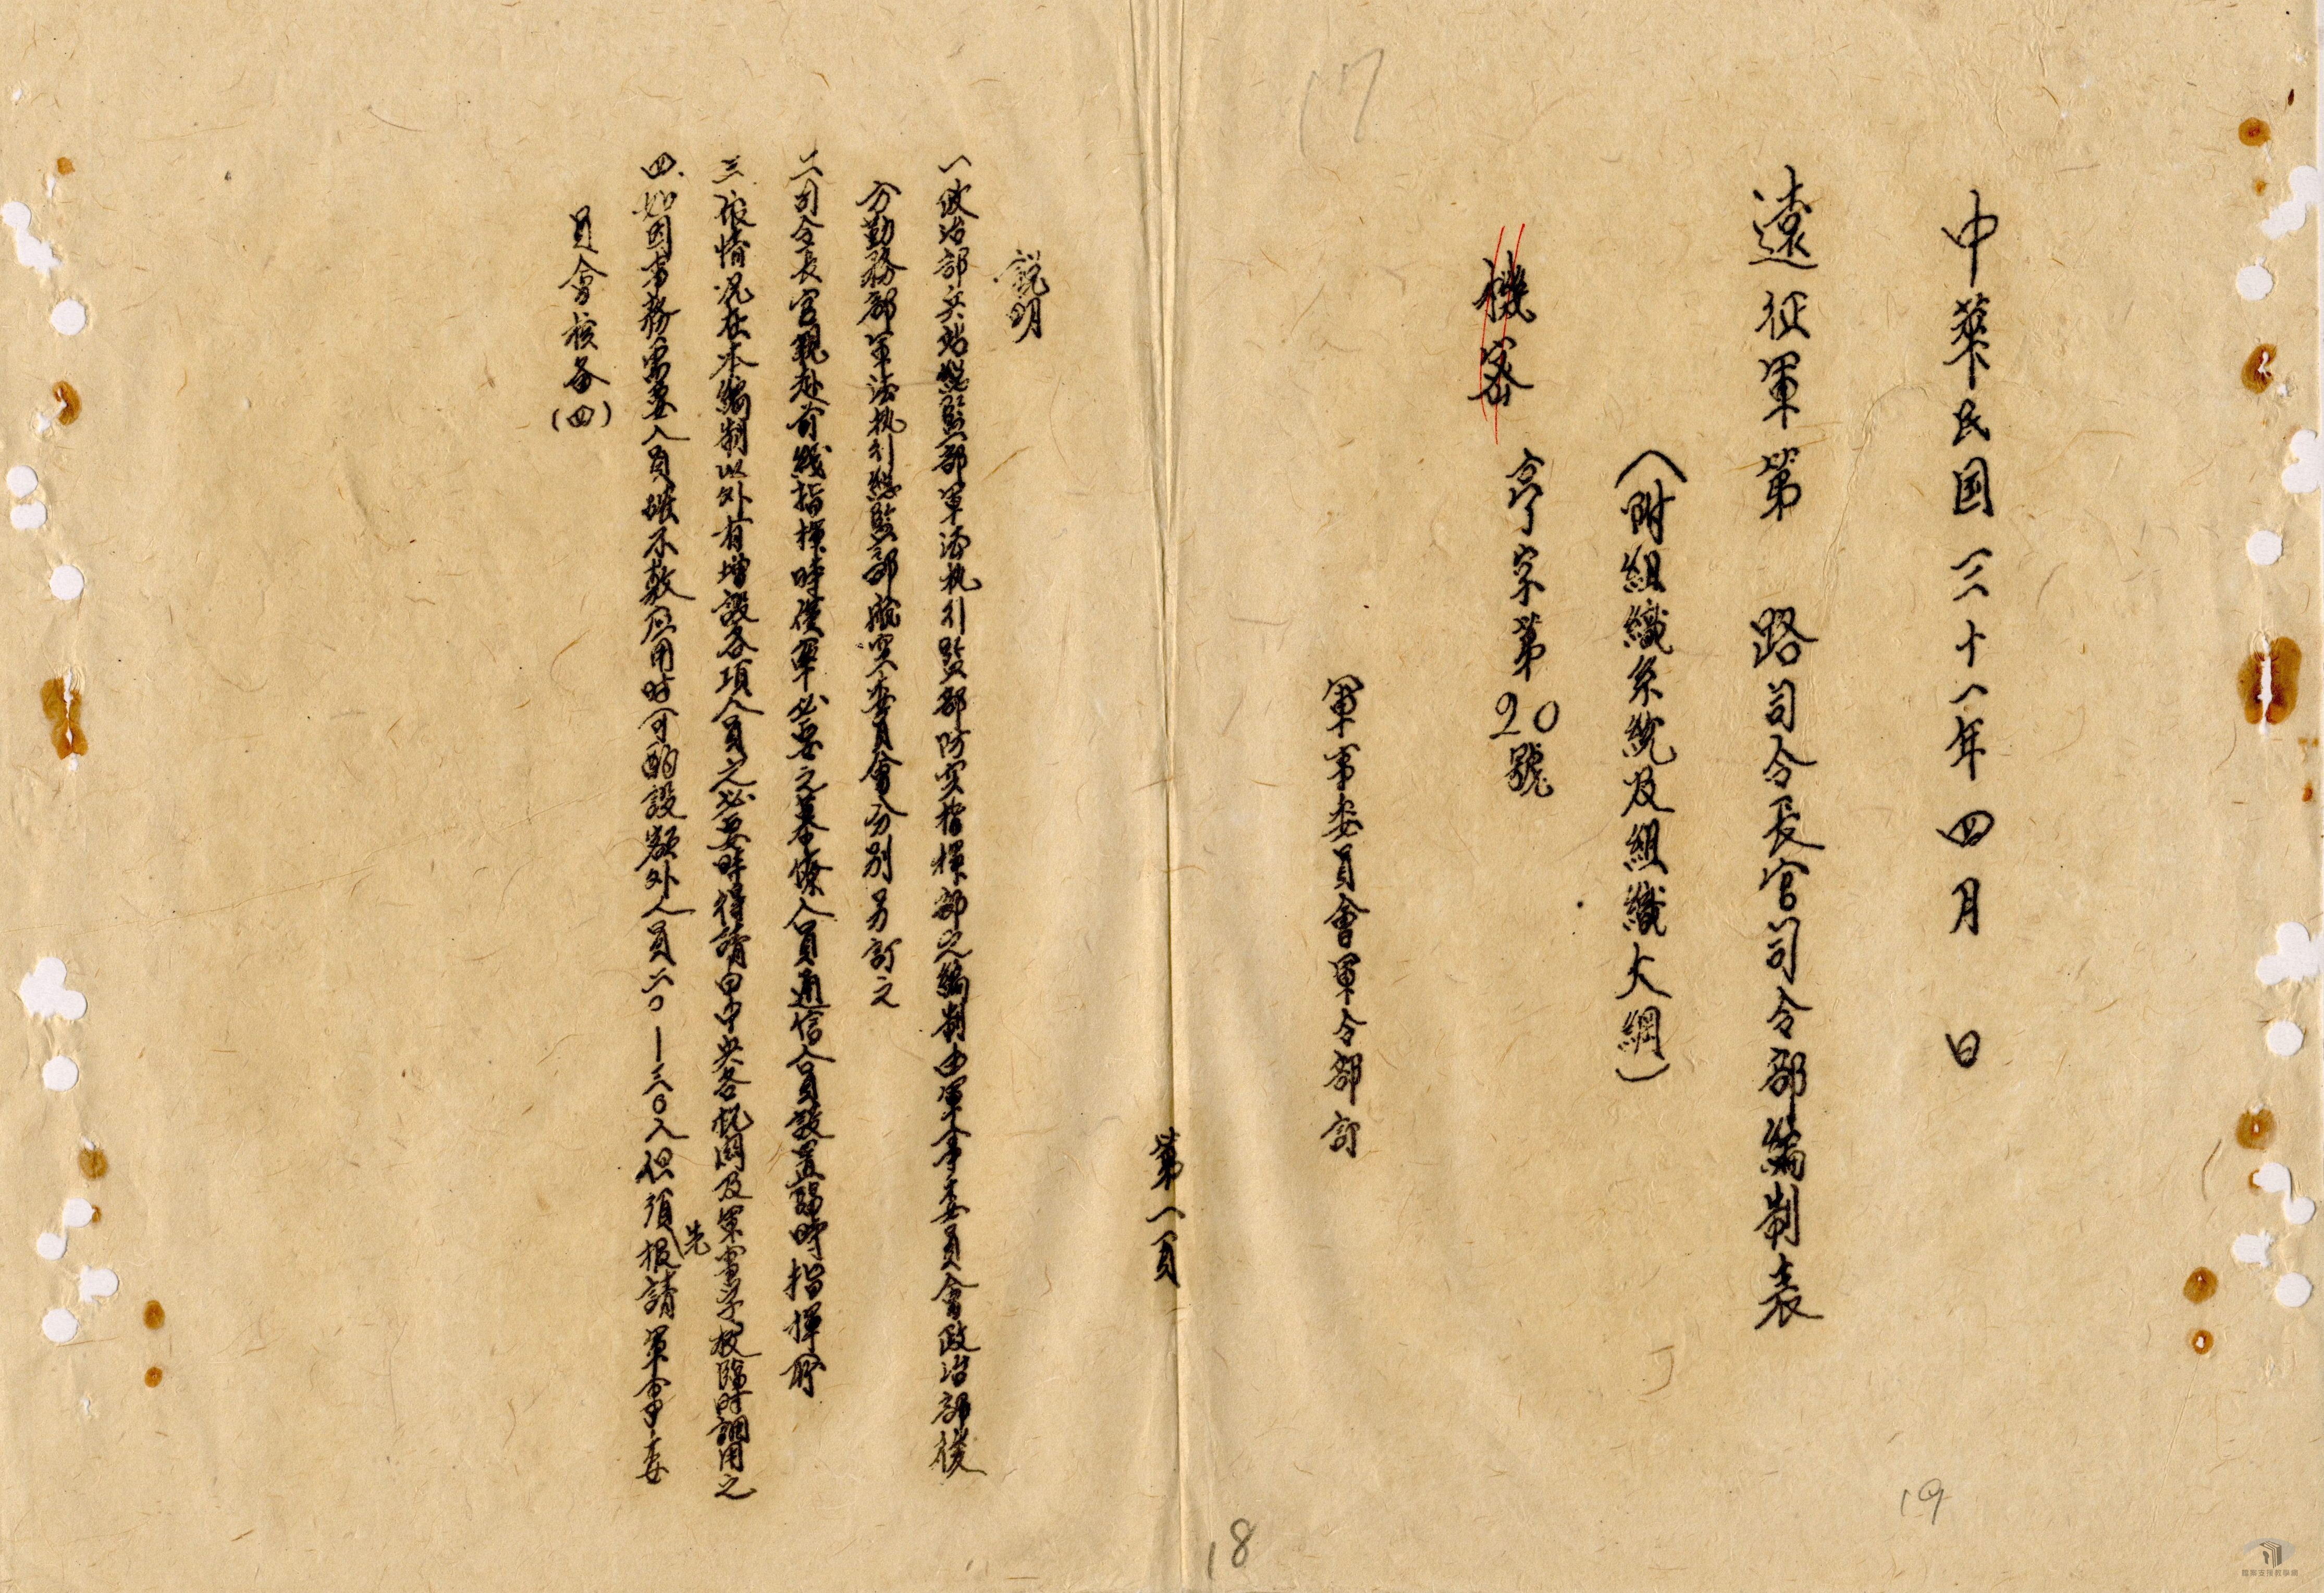 中華民国三十一年四月　日
遠征軍第　路司令長官司令部編制表
（附組織系統及組織大綱）
機密　亨字第20號
軍事委員會軍令部訂
17
19
第一頁
18
説明
一政治部兵站總監部軍法执行監部防空指揮部之編制由軍事委員會政治部後
方勤務部軍法执行總監部航空委員會分別另訂之
二司令長官親赴前綫指揮時僅率必要之幕僚人員通信人員設置臨時指揮所
三依情况在本編制以外有增設各項人員之必要時得請由中央各机関及軍事学校臨時調用之
四、如因事務需要人員確不敷应用時可酌設額外人員二〇—三〇人但須先報請軍事委
員會核备（四）
檔案支援教學網